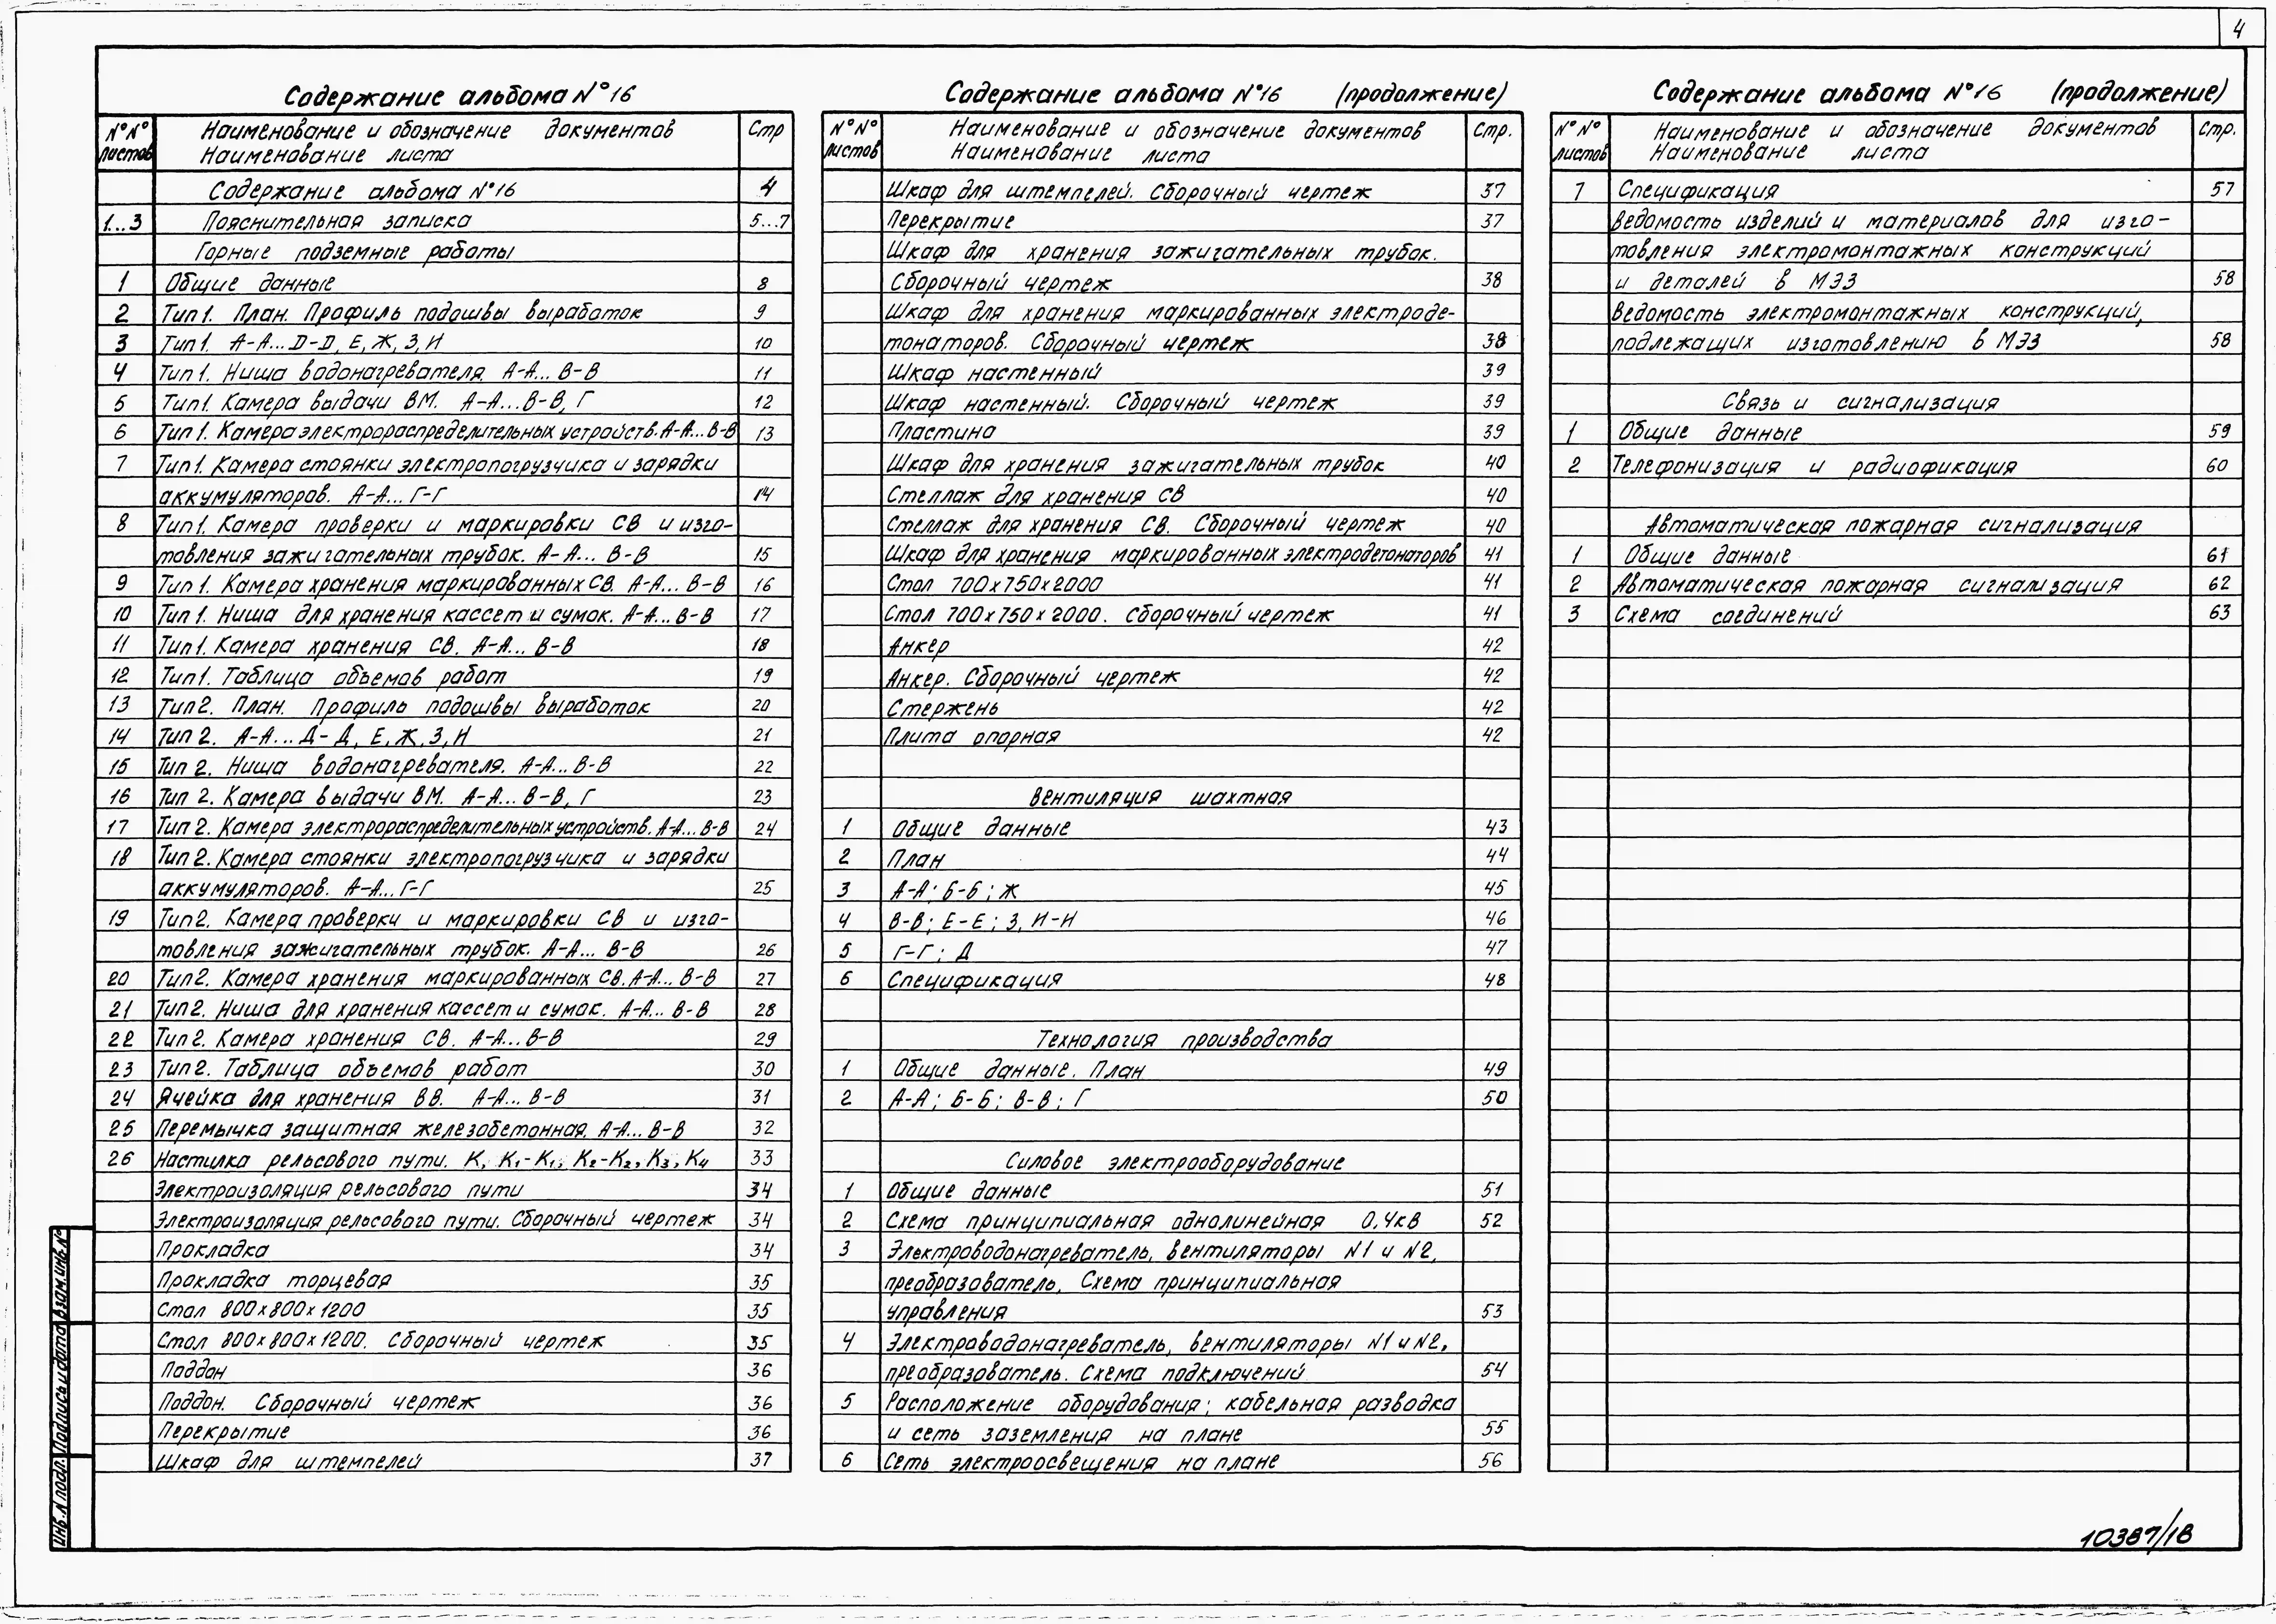 4
Содержание альбома №16
№№ листов | Наименование и обозначение документов Наименование листа | Стр
Содержание альбома №16 | 4
1...3 | Пояснительная записка | 5...7
Горные подземные работы
1 | Общие данные | 8
2 | Тип 1. План. Профиль подошвы выработок | 9
3 | Тип 1. А-А... D-D, Е, Ж, З, И | 10
4 | Тип 1. Ниша водонагревателя. А-А... В-В | 11
5 | Тип 1. Камера выдачи ВМ. А-А... В-В, Г | 12
6 | Тип 1. Камера электрораспределительных устройств. А-А... В-В | 13
7 | Тип 1. Камера стоянки электропогрузчика и зарядки
аккумуляторов. А-А... Г-Г | 14
8 | Тип 1. Камера проверки и маркировки СВ и изго-
товления зажигательных трубок. А-А... В-В | 15
9 | Тип 1. Камера хранения маркированных СВ. А-А... В-В | 16
10 | Тип 1. Ниша для хранения кассет и сумок. А-А... В-В | 17
11 | Тип 1. Камера хранения СВ. А-А... В-В | 18
12 | Тип 1. Таблица объемов работ | 19
13 | Тип 2. План. Профиль подошвы выработок | 20
14 | Тип 2. А-А... Д-Д, Е, Ж, З, И | 21
15 | Тип 2. Ниша водонагревателя. А-А... В-В | 22
16 | Тип 2. Камера выдачи ВМ. А-А... В-В, Г | 23
17 | Тип 2. Камера электрораспределительных устройств. А-А... В-В | 24
18 | Тип 2. Камера стоянки электропогрузчика и зарядки
аккумуляторов. А-А... Г-Г | 25
19 | Тип 2. Камера проверки и маркировки СВ и изго-
товления зажигательных трубок. А-А... В-В | 26
20 | Тип 2. Камера хранения маркированных СВ. А-А... В-В | 27
21 | Тип 2. Ниша для хранения кассет и сумок. А-А... В-В | 28
22 | Тип 2. Камера хранения СВ. А-А... В-В | 29
23 | Тип 2. Таблица объемов работ | 30
24 | Ячейка для хранения ВВ. А-А... В-В | 31
25 | Перемычка защитная железобетонная. А-А... В-В | 32
26 | Настилка рельсового пути. К, К1-К1, К2-К2, К3, К4 | 33
Электроизоляция рельсового пути | 34
Электроизоляция рельсового пути. Сборочный чертеж | 34
Прокладка | 34
Прокладка торцевая | 35
Стол 800х800х1200 | 35
Стол 800х800х1200. Сборочный чертеж | 35
Поддон | 36
Поддон. Сборочный чертеж | 36
Перекрытие | 36
Шкаф для штемпелей | 37
Содержание альбома №16 (продолжение)
№№ листов | Наименование и обозначение документов Наименование листа | Стр.
Шкаф для штемпелей. Сборочный чертеж | 37
Перекрытие | 37
Шкаф для хранения зажигательных трубок.
Сборочный чертеж | 38
Шкаф для хранения маркированных электроде-
тонаторов. Сборочный чертеж | 38
Шкаф настенный | 39
Шкаф настенный. Сборочный чертеж | 39
Пластина | 39
Шкаф для хранения зажигательных трубок | 40
Стеллаж для хранения СВ | 40
Стеллаж для хранения СВ. Сборочный чертеж | 40
Шкаф для хранения маркированных электродетонаторов | 41
Стол 700х750х2000 | 41
Стол 700х750х2000. Сборочный чертеж | 41
Анкер | 42
Анкер. Сборочный чертеж | 42
Стержень | 42
Плита опорная | 42
Вентиляция шахтная
1 | Общие данные | 43
2 | План | 44
3 | А-А; Б-Б; Ж | 45
4 | В-В; Е-Е; З, И-И | 46
5 | Г-Г; Д | 47
6 | Спецификация | 48
Технология производства
1 | Общие данные. План | 49
2 | А-А; Б-Б; В-В; Г | 50
Силовое электрооборудование
1 | Общие данные | 51
2 | Схема принципиальная однолинейная 0,4кВ | 52
3 | Электроводонагреватель, вентиляторы N1 и N2,
преобразователь. Схема принципиальная
управления | 53
4 | Электроводонагреватель, вентиляторы N1 и N2,
преобразователь. Схема подключений | 54
5 | Расположение оборудования; кабельная разводка
и сеть заземления на плане | 55
6 | Сеть электроосвещения на плане | 56
Содержание альбома №16 (продолжение)
№№ листов | Наименование и обозначение документов Наименование листа | Стр.
7 | Спецификация | 57
Ведомость изделий и материалов для изго-
товления электромонтажных конструкций
и деталей в МЭЗ | 58
Ведомость электромонтажных конструкций,
подлежащих изготовлению в МЭЗ | 58
Связь и сигнализация
1 | Общие данные | 59
2 | Телефонизация и радиофикация | 60
Автоматическая пожарная сигнализация
1 | Общие данные | 61
2 | Автоматическая пожарная сигнализация | 62
3 | Схема соединений | 63
Инв. N подл.
Подпись и дата
Взам. инв. №
10387/18